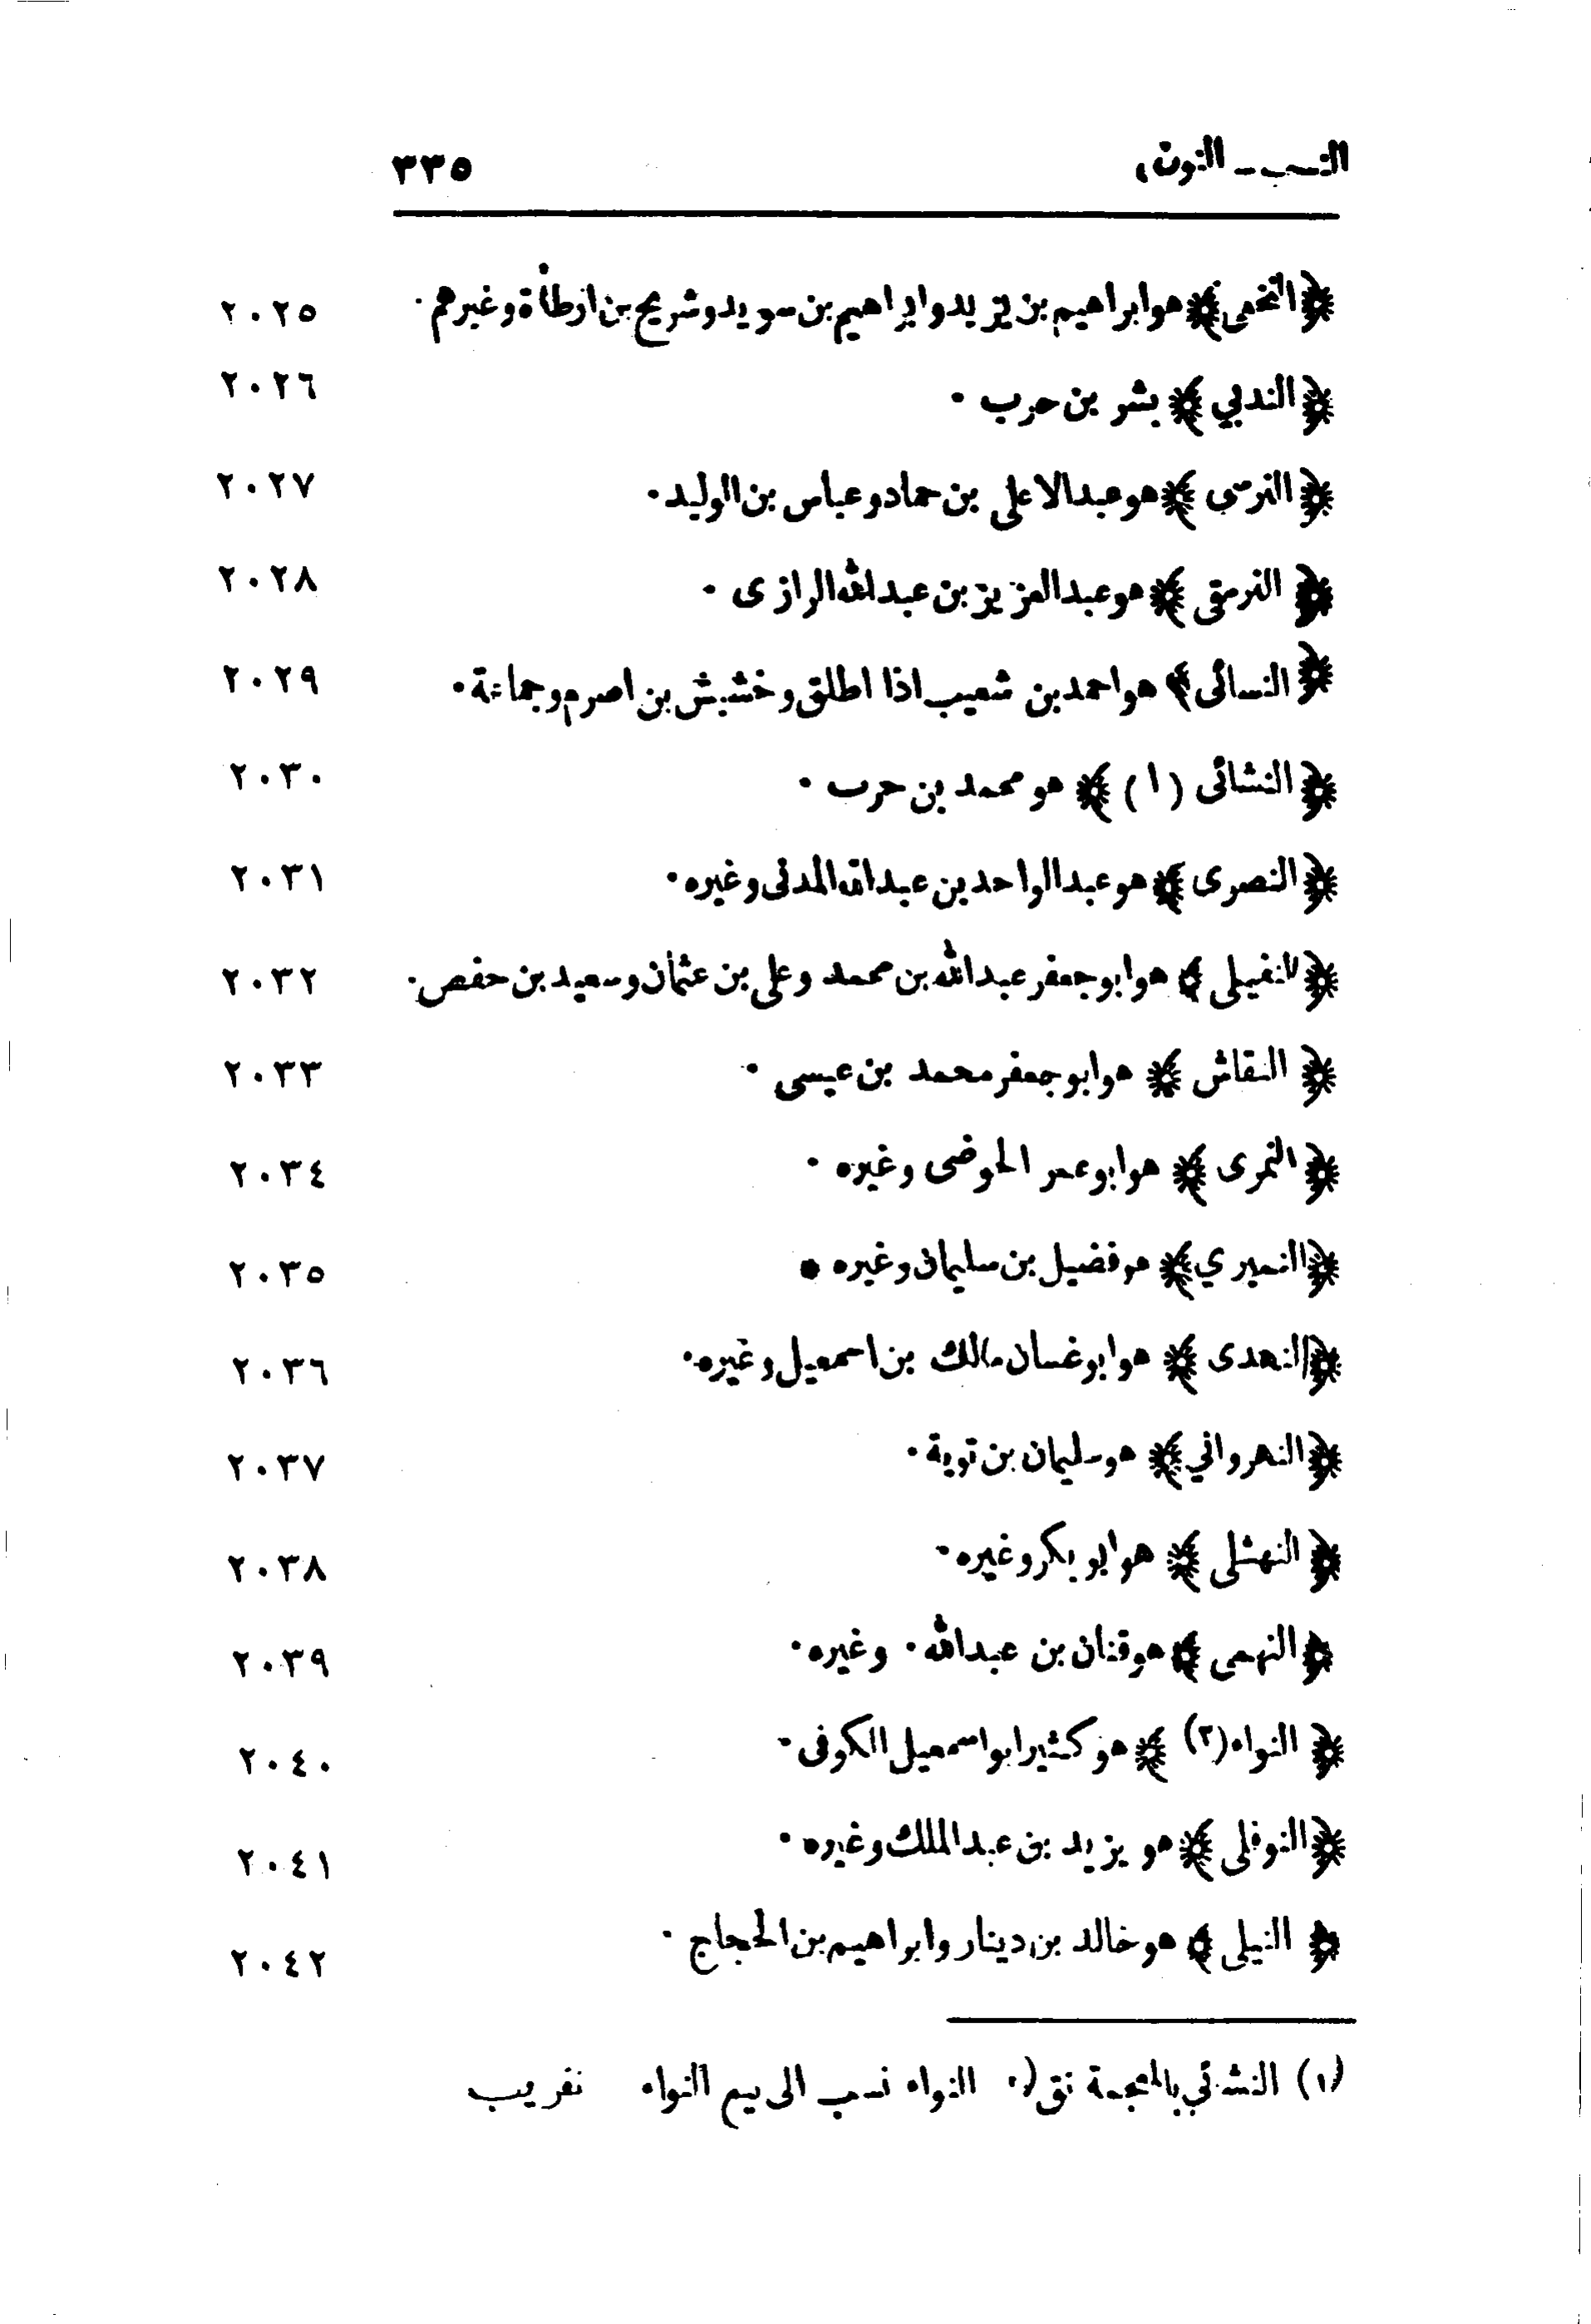 النسب - النون، ٣٣٥
﴿النخعى﴾ هو ابراهيم بن يزيد وابراهيم بن سويد وشريح بن ارطأة وغيرهم· ٢٠٢٥
﴿الندبي﴾ بشر بن حرب · ٢٠٢٦
﴿النرسى﴾ هو عبد الاعلى بن حماد وعباس بن الوليد· ٢٠٢٧
﴿النرمقى﴾ هو عبد العزيز بن عبد الله الرازى · ٢٠٢٨
﴿النسائى﴾ هو احمد بن شعيب اذا اطلق وخشيش بن اصرم وجماعة· ٢٠٢٩
﴿النشائى (١)﴾ هو محمد بن حرب · ٢٠٣٠
﴿النصرى﴾ هو عبد الواحد بن عبد الله المدنى وغيره· ٢٠٣١
﴿النفيلى﴾ هو ابو جعفر عبد الله بن محمد وعلى بن عثمان وسعيد بن حفص· ٢٠٣٢
﴿النقاش﴾ هو ابو جعفر محمد بن عيسى · ٢٠٣٣
﴿النمرى﴾ هو ابو عمر الحوضى وغيره · ٢٠٣٤
﴿النميري﴾ هو فضيل بن سليمان وغيره • ٢٠٣٥
﴿النهدى﴾ هو ابو غسان مالك بن اسمعيل وغيره· ٢٠٣٦
﴿النهرواني﴾ هو سليمان بن توبة· ٢٠٣٧
﴿النهشلى﴾ هو ابو بكر وغيره· ٢٠٣٨
﴿النهمى﴾ هو قنان بن عبد الله· وغيره· ٢٠٣٩
﴿النواء(٢)﴾ هو كثير ابو اسمعيل الكوفى· ٢٠٤٠
﴿النوفلى﴾ هو يزيد بن عبد الملك وغيره· ٢٠٤١
﴿النيلى﴾ هو خالد بن دينار وابراهيم بن الحجاج · ٢٠٤٢
(١) النشائي بالمعجمة تق النواء نسب الى بيع النواء تقريب